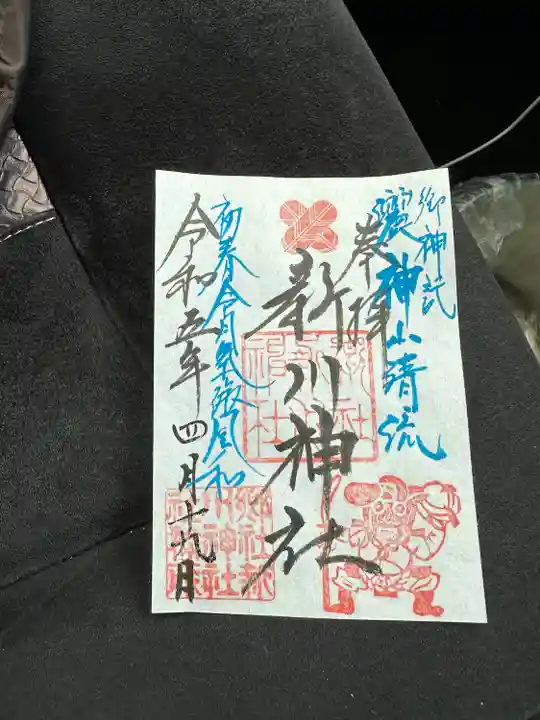 御神託
霊神山清流
奉拝
新川神社
初春令月気淑風和
令和五年四月十九日